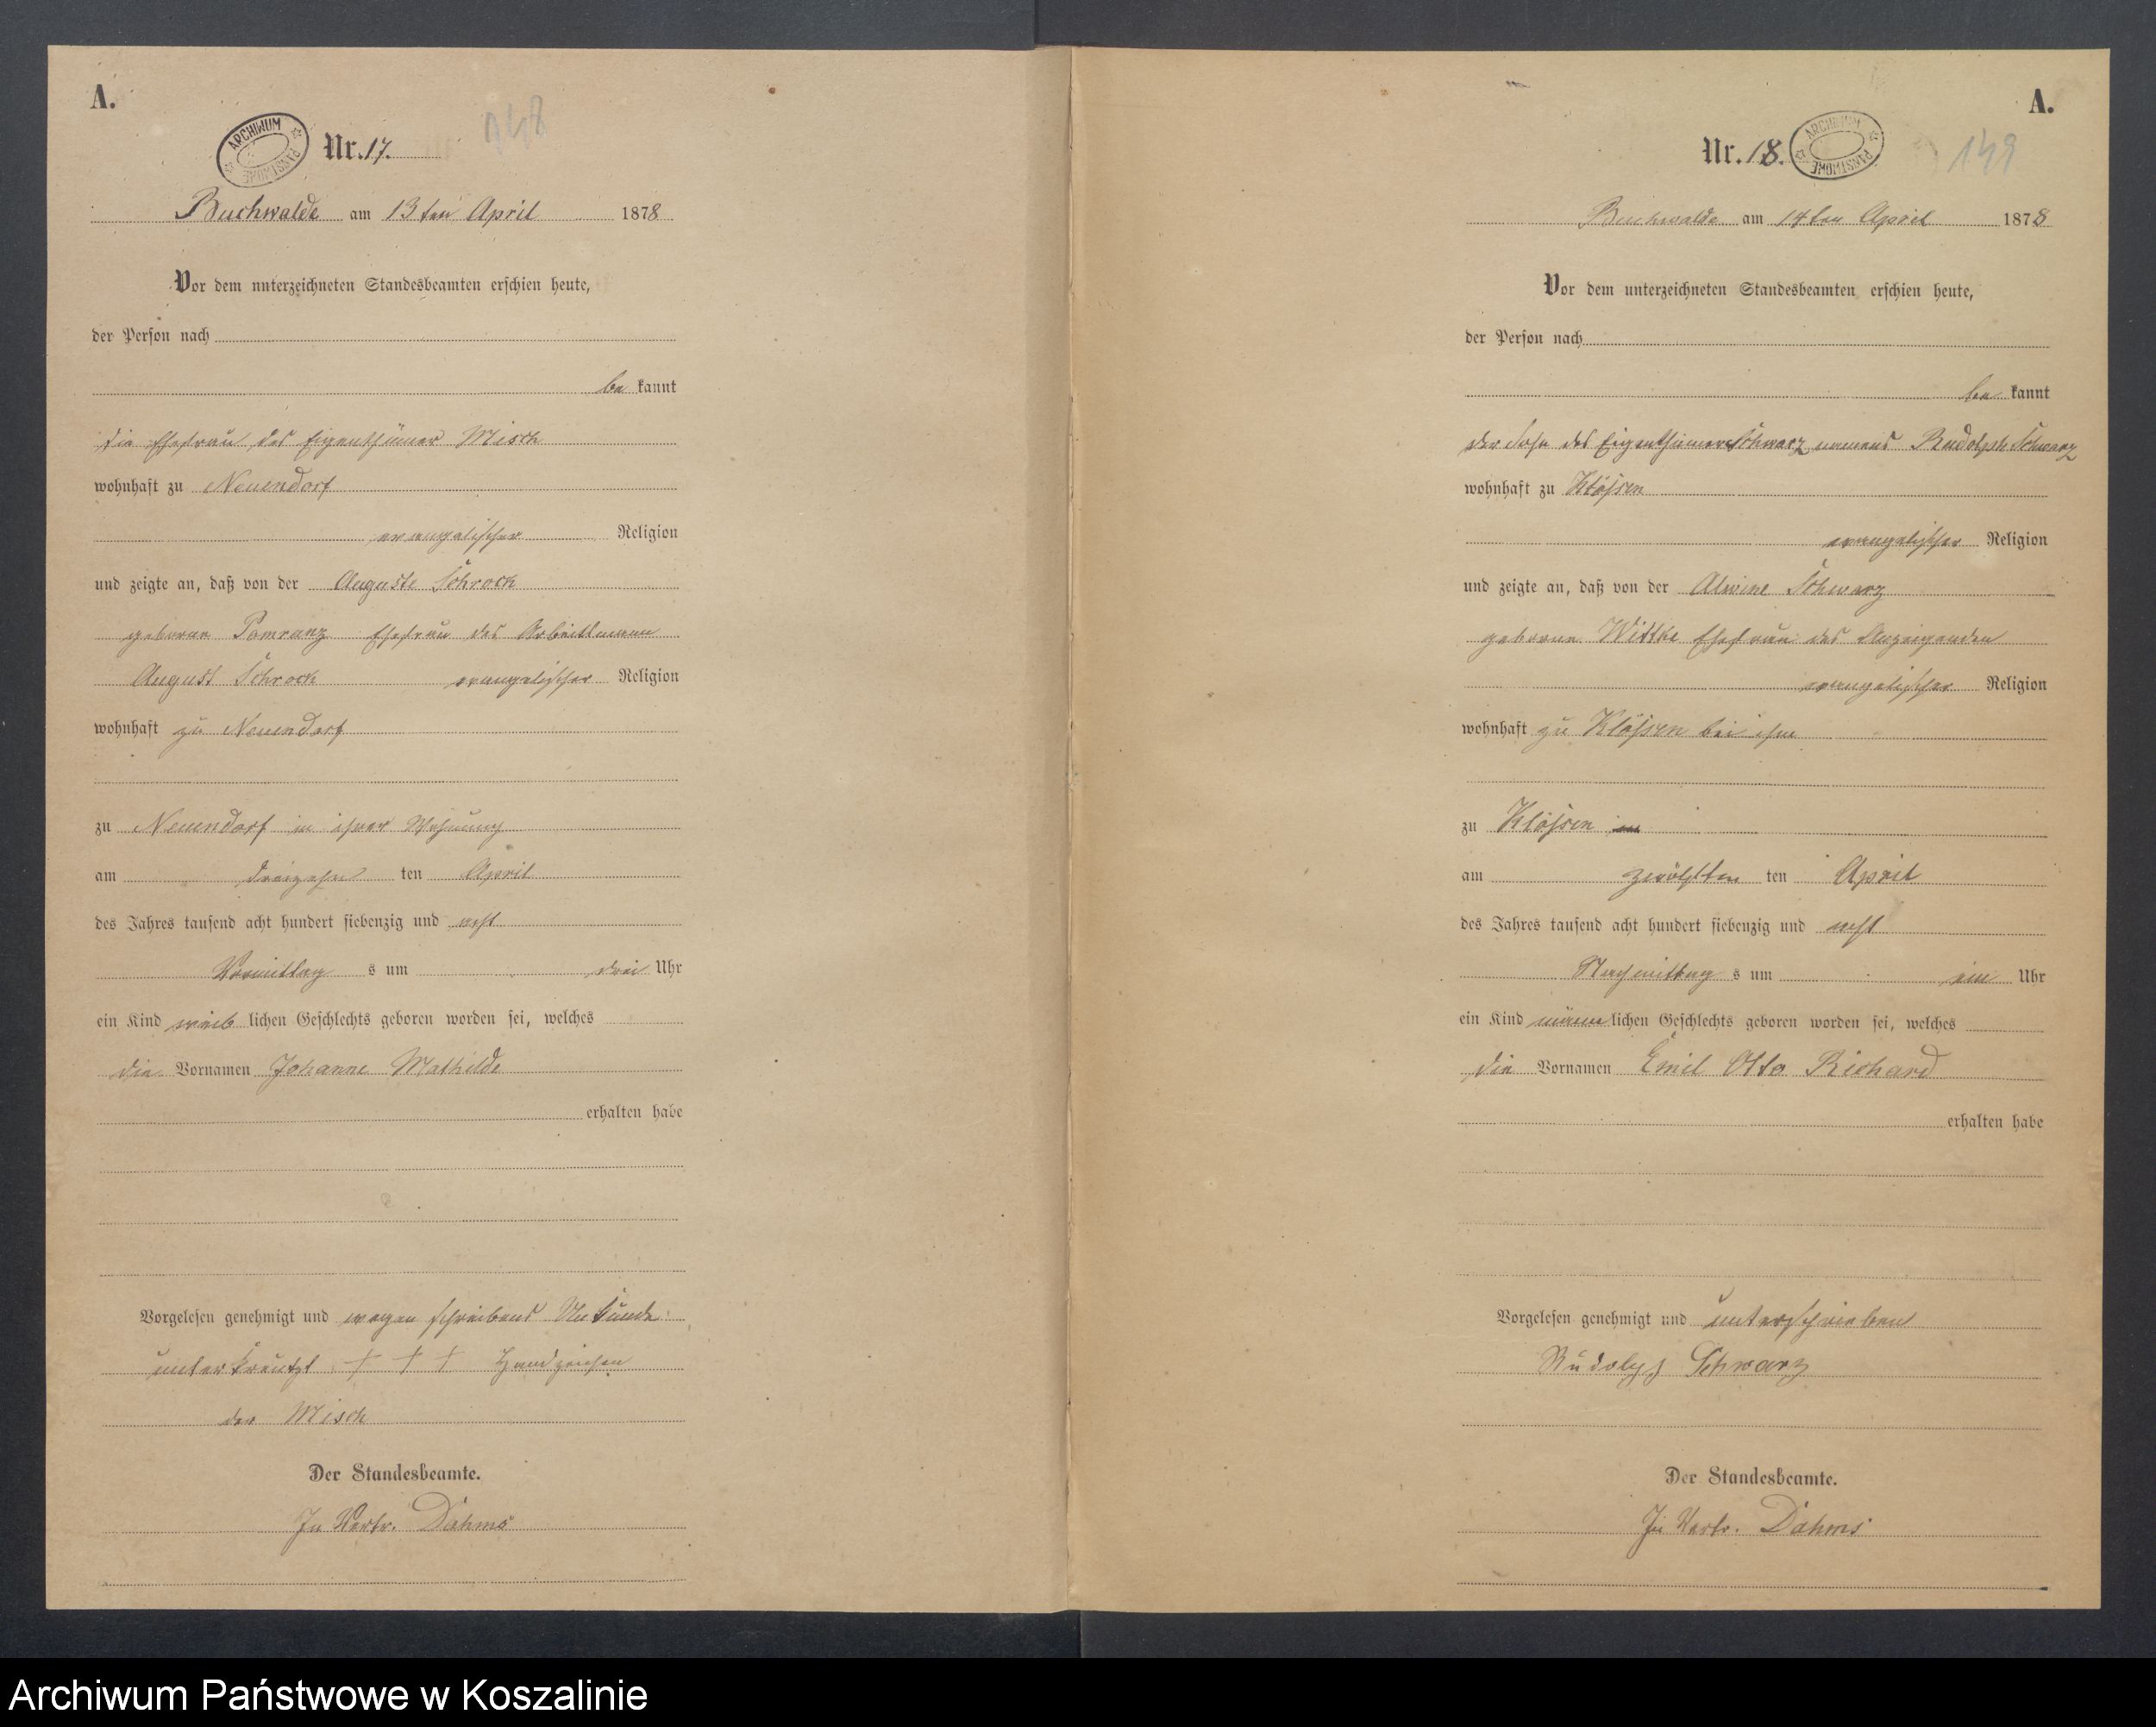 A.
ARCHIWUM PAŃSTWOWE
Nr. 17.
148
Buchwalde am 13ten April 1878
Vor dem unterzeichneten Standesbeamten erschien heute,
der Person nach
be kannt
die Ehefrau des Eigenthümer Misch
wohnhaft zu Neuendorf
evangelischer Religion
und zeigte an, daß von der Auguste Schrock
geborene Pomranz Ehefrau des Arbeitsmann
August Schrock evangelischer Religion
wohnhaft zu Neuendorf
zu Neuendorf in ihrer Wohnung
am dreizehn ten April
des Jahres tausend acht hundert siebenzig und acht
Vormittag s um drei Uhr
ein Kind weib lichen Geschlechts geboren worden sei, welches
die Vornamen Johanne Mathilde
erhalten habe
Vorgelesen genehmigt und wegen schreibens Unkunde
unterkreutzt + + + Handzeichen
der Misch
Der Standesbeamte.
In Vertr. Dahms
A.
Nr. 18.
ARCHIWUM PAŃSTWOWE
149
Buchwalde am 14ten April 1878
Vor dem unterzeichneten Standesbeamten erschien heute,
der Person nach
be kannt
der Sohn des Eigenthümers Schwarz namens Rudolph Schwarz
wohnhaft zu Klößen
evangelischer Religion
und zeigte an, daß von der Alwine Schwarz
geborene Wittke Ehefrau des Anzeigenden
evangelischer Religion
wohnhaft zu Klößen bei ihm
zu Klößen
am zwölften ten April
des Jahres tausend acht hundert siebenzig und acht
Nachmittag s um ein Uhr
ein Kind männ lichen Geschlechts geboren worden sei, welches
die Vornamen Emil Otto Richard
erhalten habe
Vorgelesen genehmigt und unterschrieben
Rudolph Schwarz
Der Standesbeamte.
In Vertr. Dahms
Archiwum Państwowe w Koszalinie